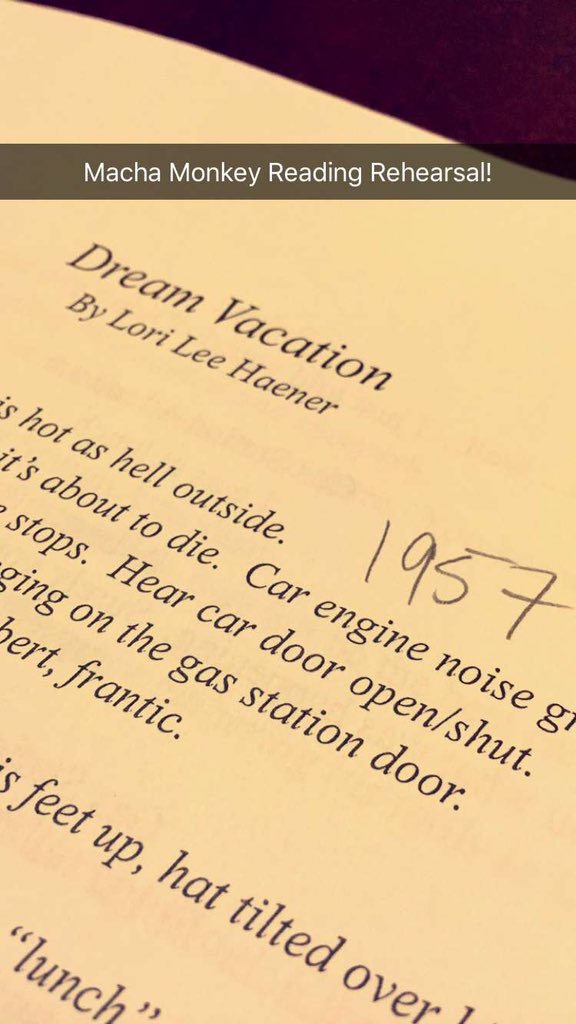 Macha Monkey Reading Rehearsal!
Dream Vacation
By Lori Lee Haener
is hot as hell outside.
it's about to die. Car engine noise
1957
stops. Hear car door open/shut.
on the gas station door.
frantic.
is feet up, hat tilted over
"lunch"